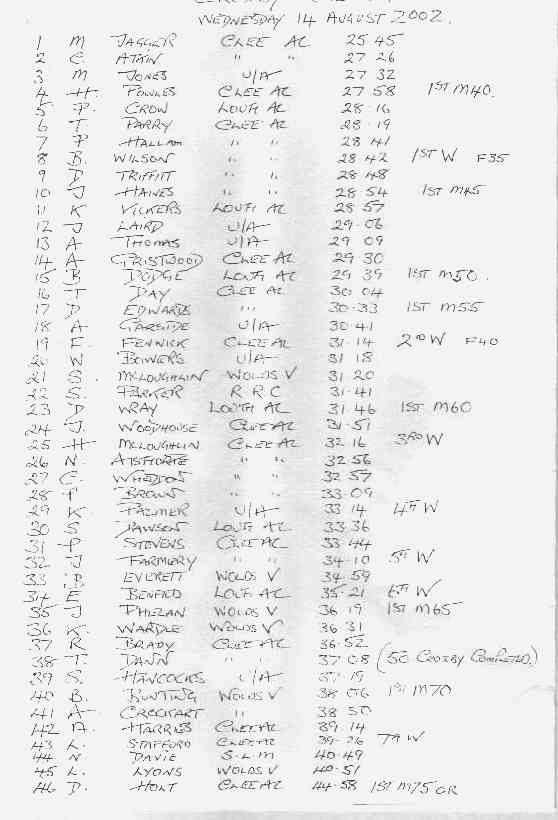 WEDNESDAY 14 AUGUST 2002.
1 M JAGGER CLEE AC 25 45
2 C. ATKIN " " 27 26
3 M JONES U/A 27 32
4 H. POWLES CLEE AC 27 58 1ST M40.
5 P. CROW LOUTH AC 28 16
6 T PARRY CLEE AC 28 19
7 P HALLAM " " 28 41
8 B. WILSON " " 28 42 1ST W F35
9 D TRIFFITT " " 28 48
10 J HAINES " " 28 54 1ST M45
11 K VICKERS LOUTH AC 28 57
12 J LAIRD U/A 29-06
13 A THOMAS U/A 29 09
14 A GRISTWOOD CLEE AC 29 30
15 B DODGE LOUTH AC 29 39 1ST M50.
16 T DAY CLEE AC 30 04
17 D EDWARDS " 30-33 1ST M55
18 A GARSIDE U/A 30 41
19 F. FENWICK CLEE AC 31-14 2ND W F40
20 W BOWERS U/A 31 18
21 S. MCLOUGHLIN WOLDS V 31 20
22 S. PARKER R R C 31-41
23 D WRAY LOUTH AC 31-46 1ST M60
24 J. WOODHOUSE CLEE AC 31-51
25 H MCLOUGHLIN CLEE AC 32 16 3RD W
26 N. " " 32 56
27 C. WHEDDON " " 32 57
28 P BROWN " " 33-09
29 K PALMER U/A 33 14 4TH W
30 S DAWSON LOUTH AC 33 36
31 P STEVENS CLEE AC 33-44
32 J FARMERY " " 34-10 5TH W
33 B EVERETT WOLDS V 34 59
34 E BENFIELD LOUTH AC 35-21 6TH W
35 J PHELAN WOLDS V 36 19 1ST M65
36 K. WARDLE WOLDS V 36 31
37 R BRADY CLEE AC 36-52
38 T. DANN " 37 08 (50 CROSBY COMPLETED.)
39 S. HANCOCKS U/A 37 19
40 B. BUNTING WOLDS V 38 06 1ST M70
41 A CROCKART " 38 50
42 A. HARRIES CLEE AC 39-14
43 L. STAFFORD CLEE AC 39-26 7TH W
44 N DAVIE S-L-M 40-49
45 L. LYONS WOLDS V 40-51
46 D. HOLT CLEE AC 44-58 1ST M75 CR